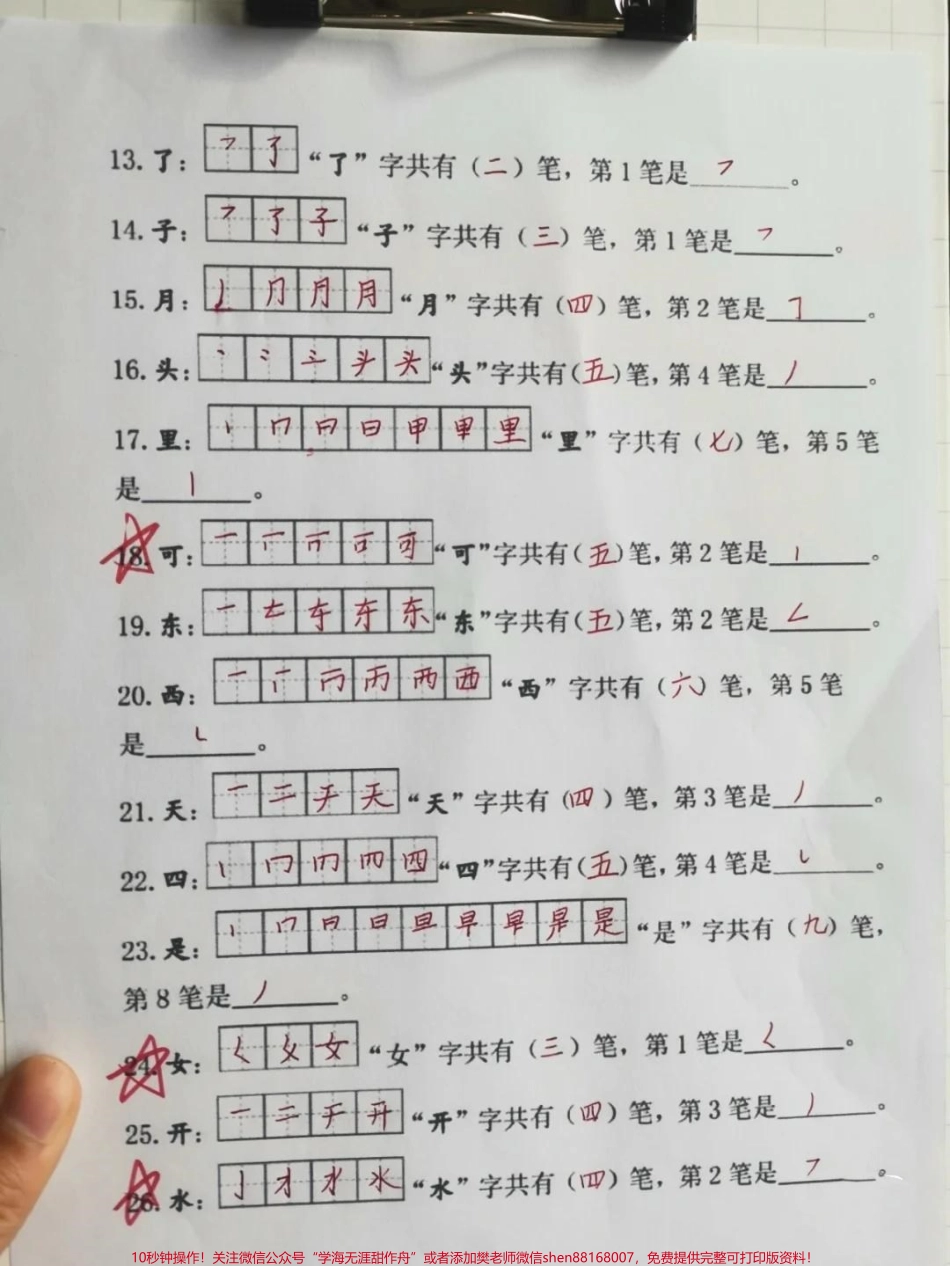 13. 了： ㇇ 了 “了”字共有（二）笔，第1笔是㇇。
14. 子： ㇇ 了 子 “子”字共有（三）笔，第1笔是㇇。
15. 月： 月 月 “月”字共有（四）笔，第2笔是㇆。
16. 头： 丶 头 “头”字共有（五）笔，第4笔是丿。
17. 里： 丨 冂 日 甲 里 “里”字共有（七）笔，第5笔
是丨。
18. 可： 一 可 “可”字共有（五）笔，第2笔是丨。
19. 东： 一 东 “东”字共有（五）笔，第2笔是ㄥ。
20. 西： 一 丙 西 “西”字共有（六）笔，第5笔
是㇄。
21. 天： 一 二 天 “天”字共有（四）笔，第3笔是丿。
22. 四： 丨 冂 四 “四”字共有（五）笔，第4笔是㇄。
23. 是： 丨 冂 日 旦 早 是 “是”字共有（九）笔，
第8笔是丿。
24. 女： ㄑ 女 “女”字共有（三）笔，第1笔是ㄑ。
25. 开： 一 二 开 “开”字共有（四）笔，第3笔是丿。
26. 水： 亅 水 “水”字共有（四）笔，第2笔是㇇。
10秒钟操作！关注微信公众号“学海无涯甜作舟”或者添加樊老师微信shen88168007，免费提供完整可打印版资料！